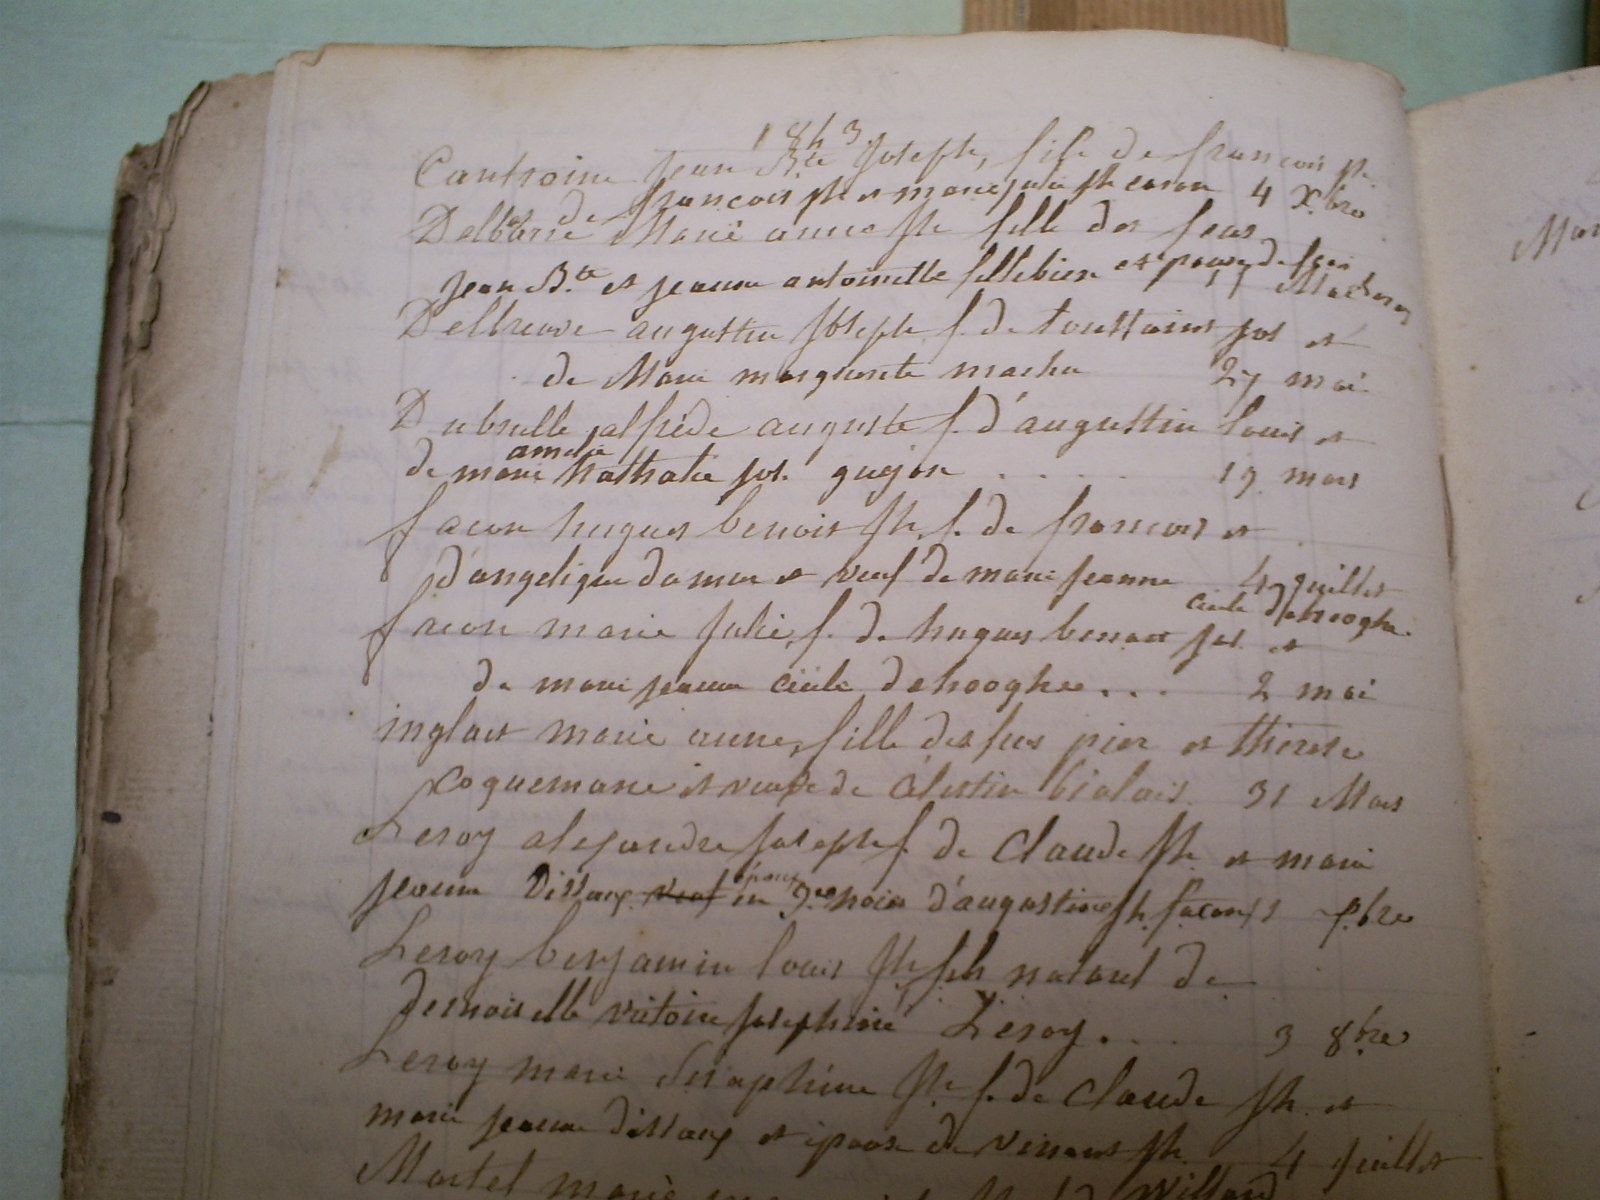 1843
Cantroine jean Bte joseph, fils de francois ph.
de francois ph et marie julie ph caron 4 Xbre
Delbarre Marie anne ph fille des feus
jean B.te et jeanne antoinette fillebien et épouse de feu
17 Mai
Delbreuve augustin joseph f. de toussaint jos et
de Marie marguerite machu 27 mai
Dubrulle alfrède auguste f. d'augustin louis et
amelie
de marie nathalie jos. gugon ..... 19 mars
facon hugues benoit ph. f. de francois et
d'angelique damur et veuf de marie jeanne 4 juillet
cicile dehooghe.
facon marie julie, f. de hugues benoit jos. et
de marie jeanne cicile dehooghe ... 2 mai
inglart marie anne, fille des feus pier et thérese
coquemane et veuve de célestin bialais. 31 Mars
Leroy alexandre joseph f. de Claude ph et marie
époux
jeanne Dissaux veuf en noces d'augustine ph. facon 7.bre
Leroy benjamin louis ph fils naturel de
demoiselle victoire josephine Leroy. ... 3 8bre
Leroy marie Séraphine ph. f. de Claude ph. et
marie jeanne dissaux et épouse de vincent ph. 4 juillet
Martel marie